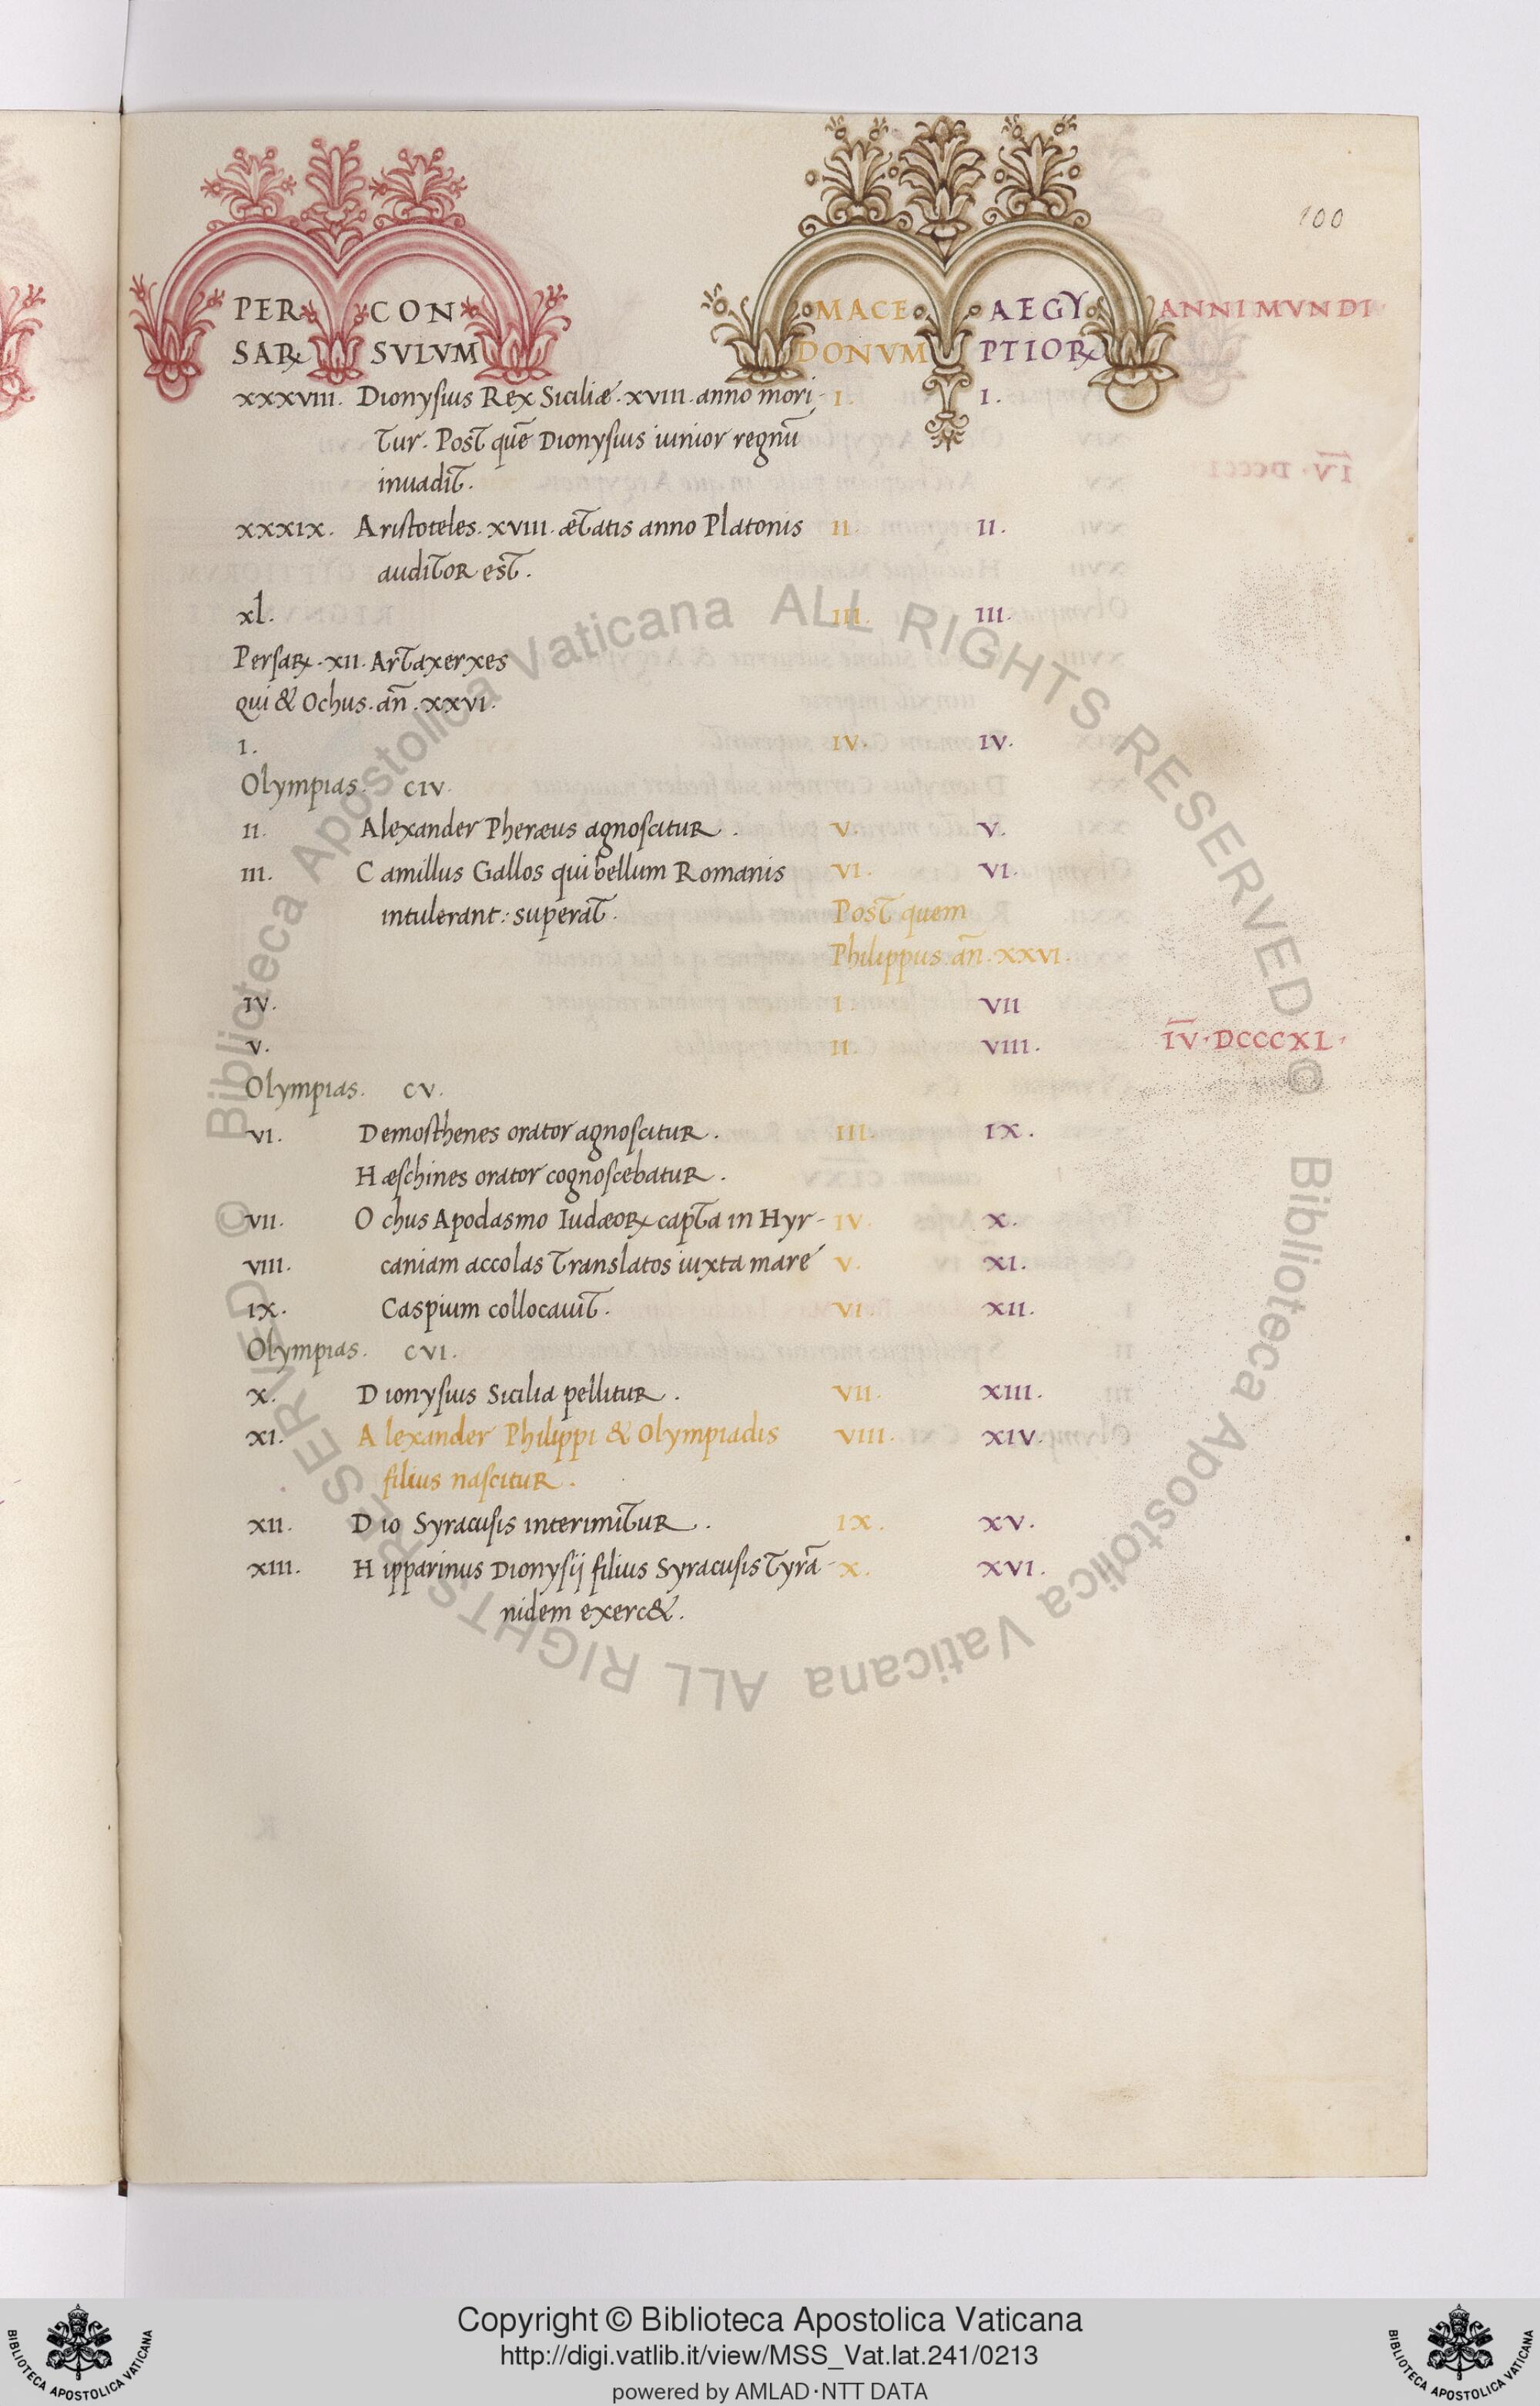 100
PER CON MACE AEGY ANNI MVNDI
SAꝝ SVLVM DONVM PTIOꝝ
XXXVIII. Dionysius Rex Siciliæ. XVIII. anno mori- I. I.
tur. Post quē Dionysius iunior regnū
inuadit.
XXXIX. Aristoteles. XVIII. ætatis anno Platonis II. II.
auditor est.
xl. III. III.
Persaꝝ. XII. Artaxerxes
qui & Ochus. an̄. XXVI.
I. IV. IV.
Olympias. CIV.
II. Alexander Pheræus agnoscitur. V. V.
III. Camillus Gallos qui bellum Romanis VI. VI.
intulerant: superat. Post quem
Philippus an̄. XXVI.
IV. I. VII
V. II. VIII. I̅V̅. DCCCXL.
Olympias. CV.
VI. Demosthenes orator agnoscitur. III. IX.
Hæschines orator cognoscebatur.
VII. Ochus Apodasmo Iudæoꝝ capta in Hyr- IV. X.
VIII. caniam accolas translatos iuxta mare V. XI.
IX. Caspium collocauit. VI. XII.
Olympias. CVI.
X. Dionysius Sicilia pellitur. VII. XIII.
XI. Alexander Philippi & Olympiadis VIII. XIV.
filius nascitur.
XII. Dio Syracusis interimitur. IX. XV.
XIII. Hipparinus Dionysij filius Syracusis tyrā- X. XVI.
nidem exerc&.
© Biblioteca Apostolica Vaticana ALL RIGHTS RESERVED
© Biblioteca Apostolica Vaticana ALL RIGHTS RESERVED
BIBLIOTECA APOSTOLICA VATICANA
Copyright © Biblioteca Apostolica Vaticana
http://digi.vatlib.it/view/MSS_Vat.lat.241/0213
powered by AMLAD·NTT DATA
BIBLIOTECA APOSTOLICA VATICANA